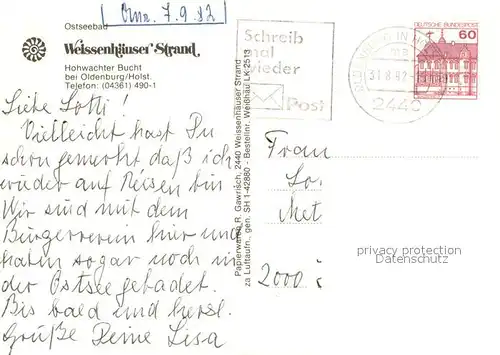 Ostseebad
Erh. 7.9.82
Weissenhäuser Strand
Hohwachter Bucht
bei Oldenburg/Holst.
Telefon: (04361) 490-1
Liebe Lotti!
Vielleicht hast Du
schon gemerkt daß ich
wieder auf Reisen bin
Wir sind mit dem
Bürgerverein hier und
haben sogar noch in
der Ostsee gebadet.
Bis bald und herzl.
Grüße Deine Lisa
Papierwaren R. Gawrisch, 2440 Weissenhäuser Strand
za Luftaufn., gen. SH 1-42880 - Bestellnr. Weißhäu LK 2513
Schreib
mal
wieder
Post
31.8.82
2440
DEUTSCHE BUNDESPOST
60
Frau
Lo
Met
2000
privacy protection
Datenschutz